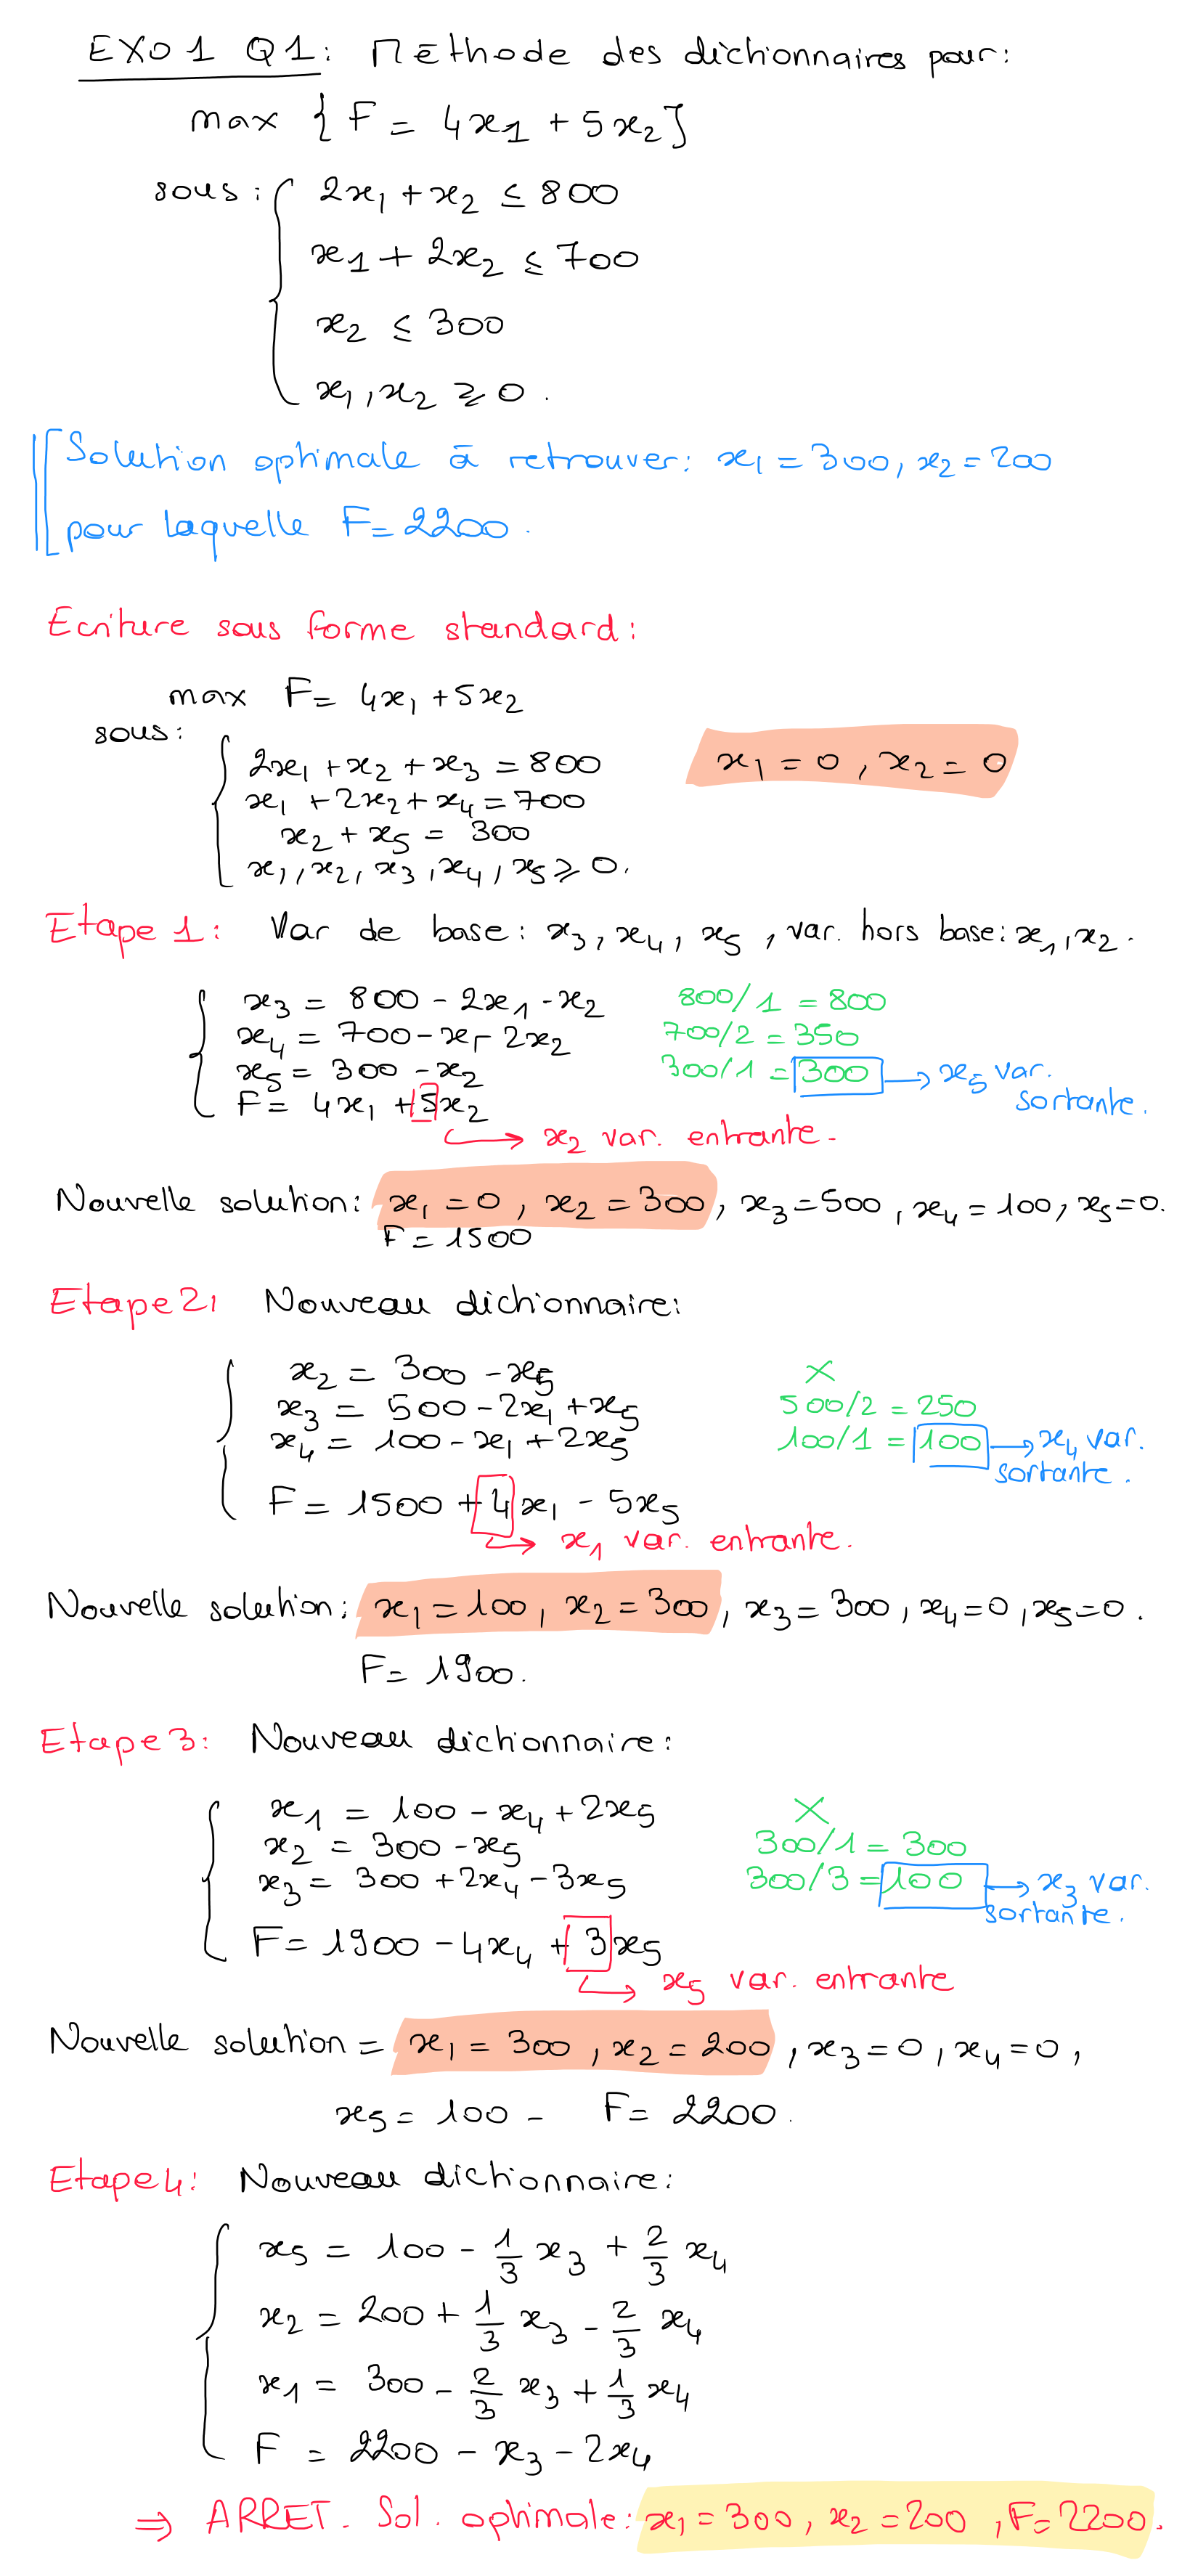 EXO1 Q1: Méthode des dictionnaires pour:
max { F = 4x1 + 5x2 }
sous: 2x1 + x2 ≤ 800
x1 + 2x2 ≤ 700
x2 ≤ 300
x1, x2 ≥ 0.
Solution optimale à retrouver: x1 = 300, x2 = 200
pour laquelle F = 2200.
Ecriture sous forme standard:
max F = 4x1 + 5x2
sous:
2x1 + x2 + x3 = 800 x1 = 0, x2 = 0
x1 + 2x2 + x4 = 700
x2 + x5 = 300
x1, x2, x3, x4, x5 ≥ 0.
Etape 1: Var de base: x3, x4, x5, var. hors base: x1, x2.
x3 = 800 - 2x1 - x2 800/1 = 800
x4 = 700 - x1 - 2x2 700/2 = 350
x5 = 300 - x2 300/1 = 300 → x5 var.
sortante.
F = 4x1 + 5x2
→ x2 var. entrante.
Nouvelle solution: x1 = 0, x2 = 300, x3 = 500, x4 = 100, x5 = 0.
F = 1500
Etape 2: Nouveau dictionnaire:
x2 = 300 - x5 X
x3 = 500 - 2x1 + x5 500/2 = 250
x4 = 100 - x1 + 2x5 100/1 = 100 → x4 var.
sortante.
F = 1500 + 4x1 - 5x5
→ x1 var. entrante.
Nouvelle solution: x1 = 100, x2 = 300, x3 = 300, x4 = 0, x5 = 0.
F = 1900.
Etape 3: Nouveau dictionnaire:
x1 = 100 - x4 + 2x5 X
x2 = 300 - x5 300/1 = 300
x3 = 300 + 2x4 - 3x5 300/3 = 100 → x3 var.
sortante.
F = 1900 - 4x4 + 3x5
→ x5 var. entrante
Nouvelle solution = x1 = 300, x2 = 200, x3 = 0, x4 = 0,
x5 = 100 - F = 2200.
Etape 4: Nouveau dictionnaire:
x5 = 100 - 1/3 x3 + 2/3 x4
x2 = 200 + 1/3 x3 - 2/3 x4
x1 = 300 - 2/3 x3 + 1/3 x4
F = 2200 - x3 - 2x4
⇒ ARRET. Sol. optimale: x1 = 300, x2 = 200, F = 2200.